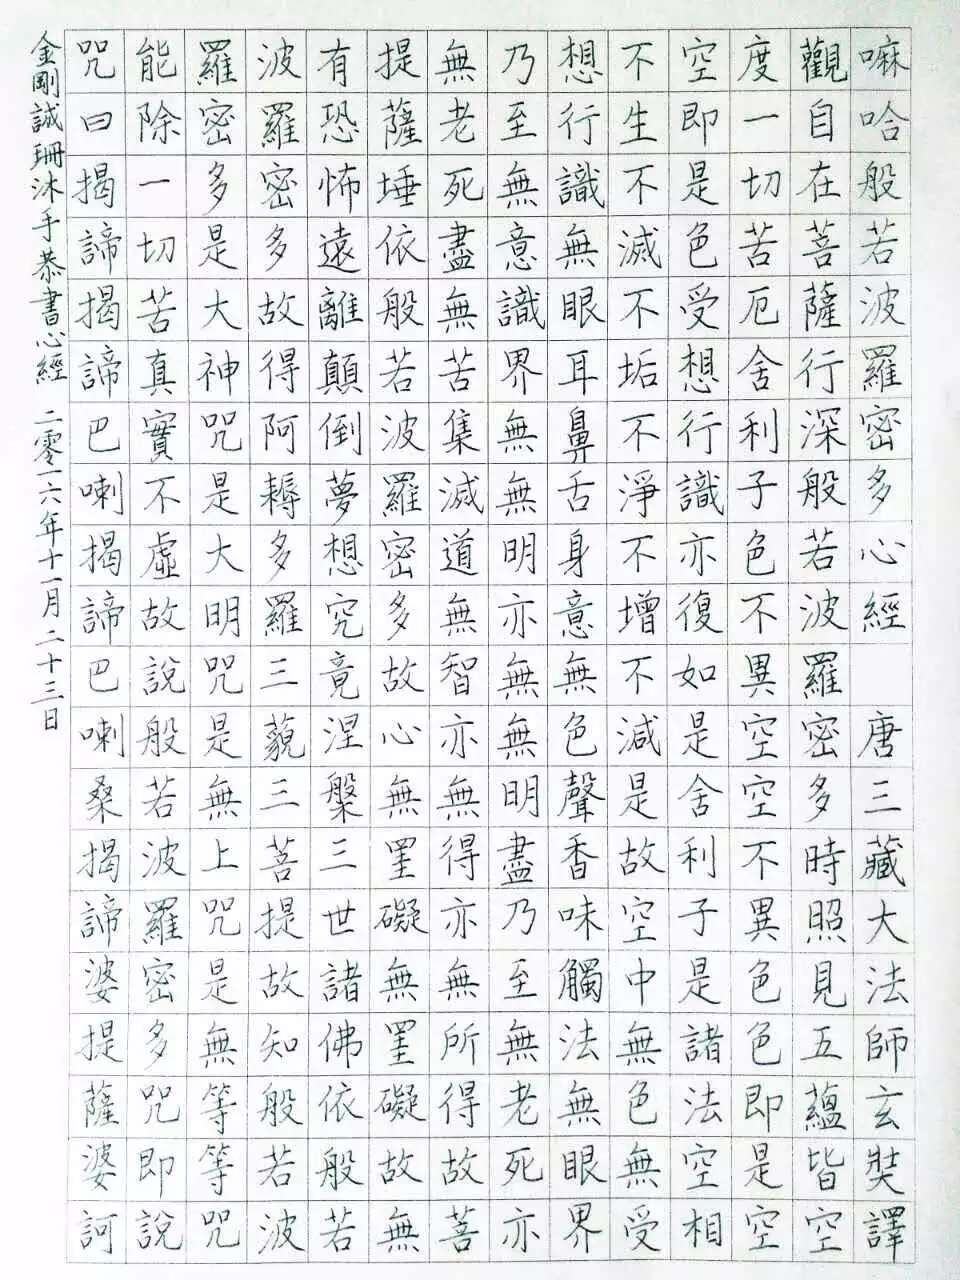 嘛哈般若波羅密多心經 唐三藏大法師玄奘譯
觀自在菩薩行深般若波羅密多時照見五蘊皆空
度一切苦厄舍利子色不異空空不異色色即是空
空即是色受想行識亦復如是舍利子是諸法空相
不生不滅不垢不淨不增不減是故空中無色無受
想行識無眼耳鼻舌身意無色聲香味觸法無眼界
乃至無意識界無無明亦無無明盡乃至無老死亦
無老死盡無苦集滅道無智亦無得亦無所得故菩
提薩埵依般若波羅密多故心無罣礙無罣礙故無
有恐怖遠離顛倒夢想究竟涅槃三世諸佛依般若
波羅密多故得阿耨多羅三藐三菩提故知般若波
羅密多是大神咒是大明咒是無上咒是無等等咒
能除一切苦真實不虛故說般若波羅密多咒即說
咒曰揭諦揭諦巴喇揭諦巴喇桑揭諦婆提薩婆訶
金剛誠珊沐手恭書心經 二零一六年十一月二十三日